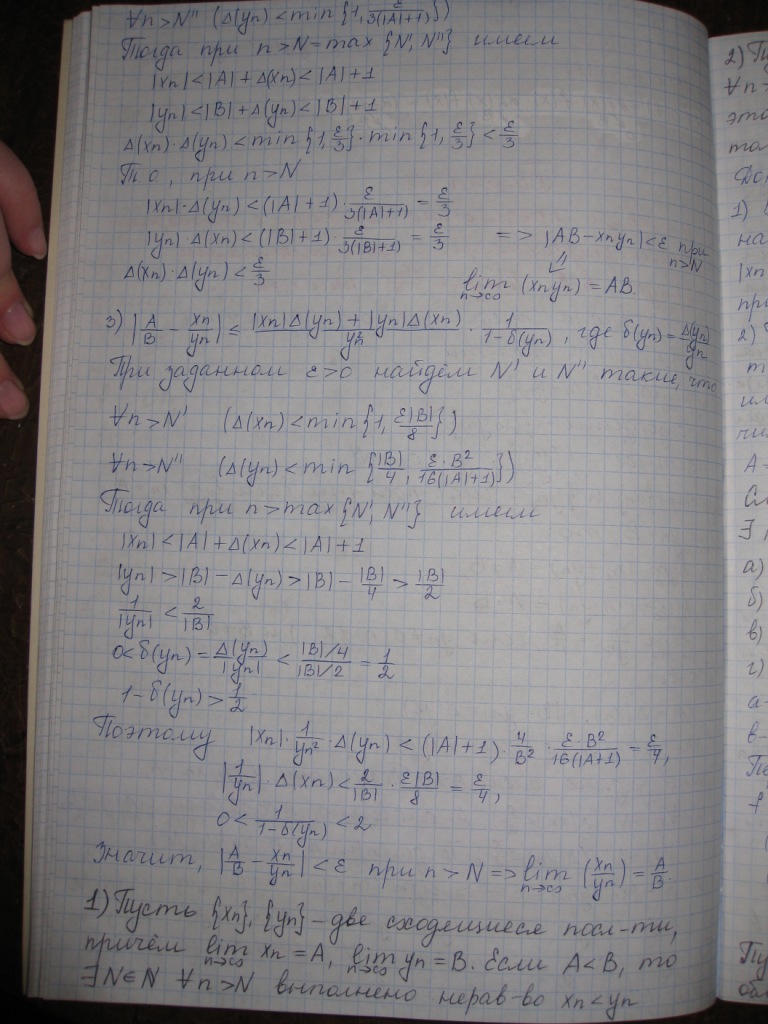 ∀n>N'' (Δ(yn)<min{1, ε/3(|A|+1)})
Тогда при n>N=max{N', N''} имеем
|xn|<|A|+Δ(xn)<|A|+1
|yn|<|B|+Δ(yn)<|B|+1
Δ(xn)·Δ(yn)<min{1, ε/3}·min{1, ε/3}<ε/3
Т о, при n>N
|xn|·Δ(yn)<(|A|+1)·ε/3(|A|+1)=ε/3
|yn|·Δ(xn)<(|B|+1)·ε/3(|B|+1)=ε/3 => |AB-xnyn|<ε при n>N
Δ(xn)·Δ(yn)<ε/3 ⇓
lim n→∞ (xnyn)=AB.
3) |A/B - xn/yn| ≤ |xn|Δ(yn)+|yn|Δ(xn)/yn² · 1/1-δ(yn), где δ(yn)=Δ(yn)/yn
При заданном ε>0 найдём N' и N'' такие, что
∀n>N' (Δ(xn)<min{1, ε|B|/8})
∀n>N'' (Δ(yn)<min{|B|/4, ε·B²/16(|A|+1)})
Тогда при n>max{N', N''} имеем
|xn|<|A|+Δ(xn)<|A|+1
|yn|>|B|-Δ(yn)>|B|-|B|/4>|B|/2
1/|yn|<2/|B|
0<δ(yn)=Δ(yn)/|yn|<|B|/4/|B|/2=1/2
1-δ(yn)>1/2
Поэтому |xn|·1/yn²·Δ(yn)<(|A|+1)·4/B²·ε·B²/16(|A+1)=ε/4,
|1/yn|·Δ(xn)<2/|B|·ε|B|/8=ε/4,
0<1/1-δ(yn)<2
Значит, |A/B - xn/yn|<ε при n>N => lim n→∞ (xn/yn)=A/B.
1) Пусть {xn}, {yn} – две сходящиеся посл-ти,
причём lim n→∞ xn=A, lim n→∞ yn=B. Если A<B, то
∃N∈N ∀n>N выполнено нерав-во xn<yn
2) Пу
∀n>
это
1)
на
|xn
при
2)
A=
Сл
∃
а)
б)
в)
г)
а-
в-
f
Пу